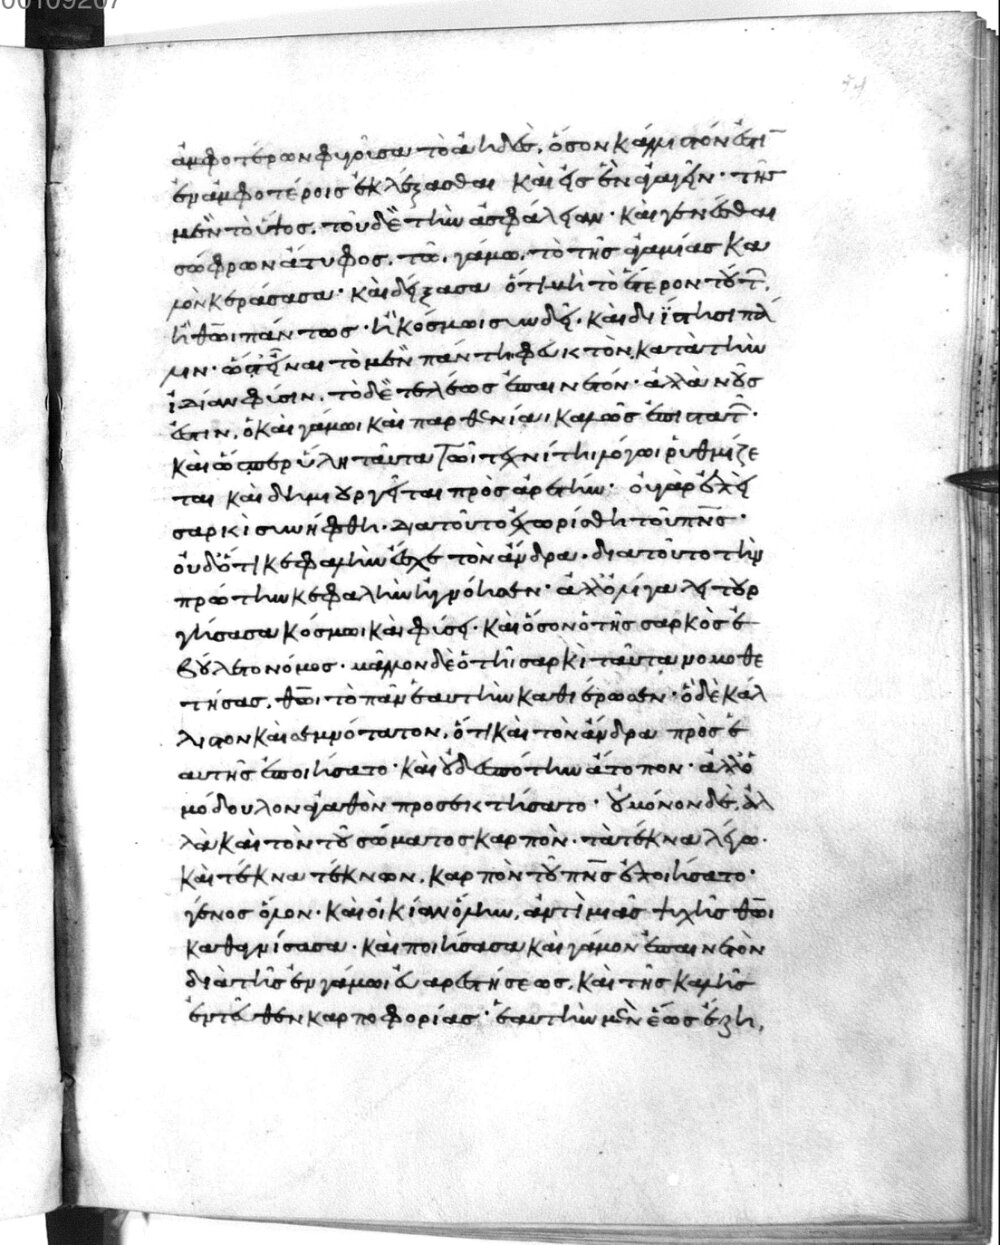 00109207
ἀμφοτέρων φυγοῦσα τὸ ἀηδὲς, ὅσον κάλλιστόν ἐστιν
ἐν ἀμφοτέροις ἐκλέξασθαι καὶ εἰς ἓν ἀγαγεῖν· τῆς
μὲν τὸ ὕψος, τοῦ δὲ τὴν ἀσφάλειαν· καὶ γενέσθαι
σώφρων ἄτυφος, τῶι γάμωι, τὸ τῆς ἀγαμίας κα
λὸν κεράσασα· καὶ δείξασα ὅτι μὴ τὸ ἕτερον τούτων,
ἢ θεῶι πάντως· ἢ κόσμωι συνδεῖ· καὶ διΐστησι πά
λιν· ὥστε εἶναι τὸ μὲν παντὶ φευκτὸν κατὰ τὴν
ἰδίαν φύσιν, τὸ δὲ τελέως ἐπαινετόν· ἀλλὰ νοῦς
ἐστιν, ὁ καὶ γάμωι καὶ παρθενίαι καλῶς ἐπιστατῶν·
καὶ ὥσπερ ὕλη ταῦτα τῶι τεχνίτηι λόγωι ῥυθμίζε
ται καὶ δημιουργεῖται πρὸς ἀρετήν· οὐ γὰρ ἐπεὶ
σαρκὶ συνήφθη, διὰ τοῦτο ἐχωρίσθη τοῦ πνς·
οὐδ' ὅτι κεφαλὴν ἔσχε τὸν ἄνδρα, διὰ τοῦτο τὴν
πρώτην κεφαλὴν ἠγνόησεν· ἀλλ' ὀλίγα λειτουρ
γήσασα κόσμωι καὶ φύσει· καὶ ὅσον ὁ τῆς σαρκὸς ἐ
βούλετο νόμος· μᾶλλον δὲ ὁ τῆι σαρκὶ ταῦτα νομοθε
τήσας, θεῶι τὸ πᾶν ἑαυτὴν καθιέρωσεν· ὃ δὲ κάλ
λιστον καὶ σεμνότατον, ὅτι καὶ τὸν ἄνδρα πρὸς ἑ
αυτῆς ἐποιήσατο· καὶ οὐ δεσπότην ἄτοπον· ἀλλ' ὁ
μόδουλον ἀγαθὸν προσεκτήσατο· οὐ μόνον δὲ, ἀλ
λὰ καὶ τὸν τοῦ σώματος καρπὸν· τὰ τέκνα λέγω·
καὶ τέκνα τέκνων, καρπὸν τοῦ πνς ἐποιήσατο·
γένος ὅλον· καὶ οἰκίαν ὅλην, ἀντὶ μιᾶς ψυχῆς θεῶι
καθαγνίσασα· καὶ ποιήσασα καὶ γάμον ἐπαινετὸν
διὰ τῆς ἐν γάμωι εὐαρεστήσεως, καὶ τῆς καλῆς
ἐντεῦθεν καρποφορίας· ἑαυτὴν μὲν ἕως ἔζη,